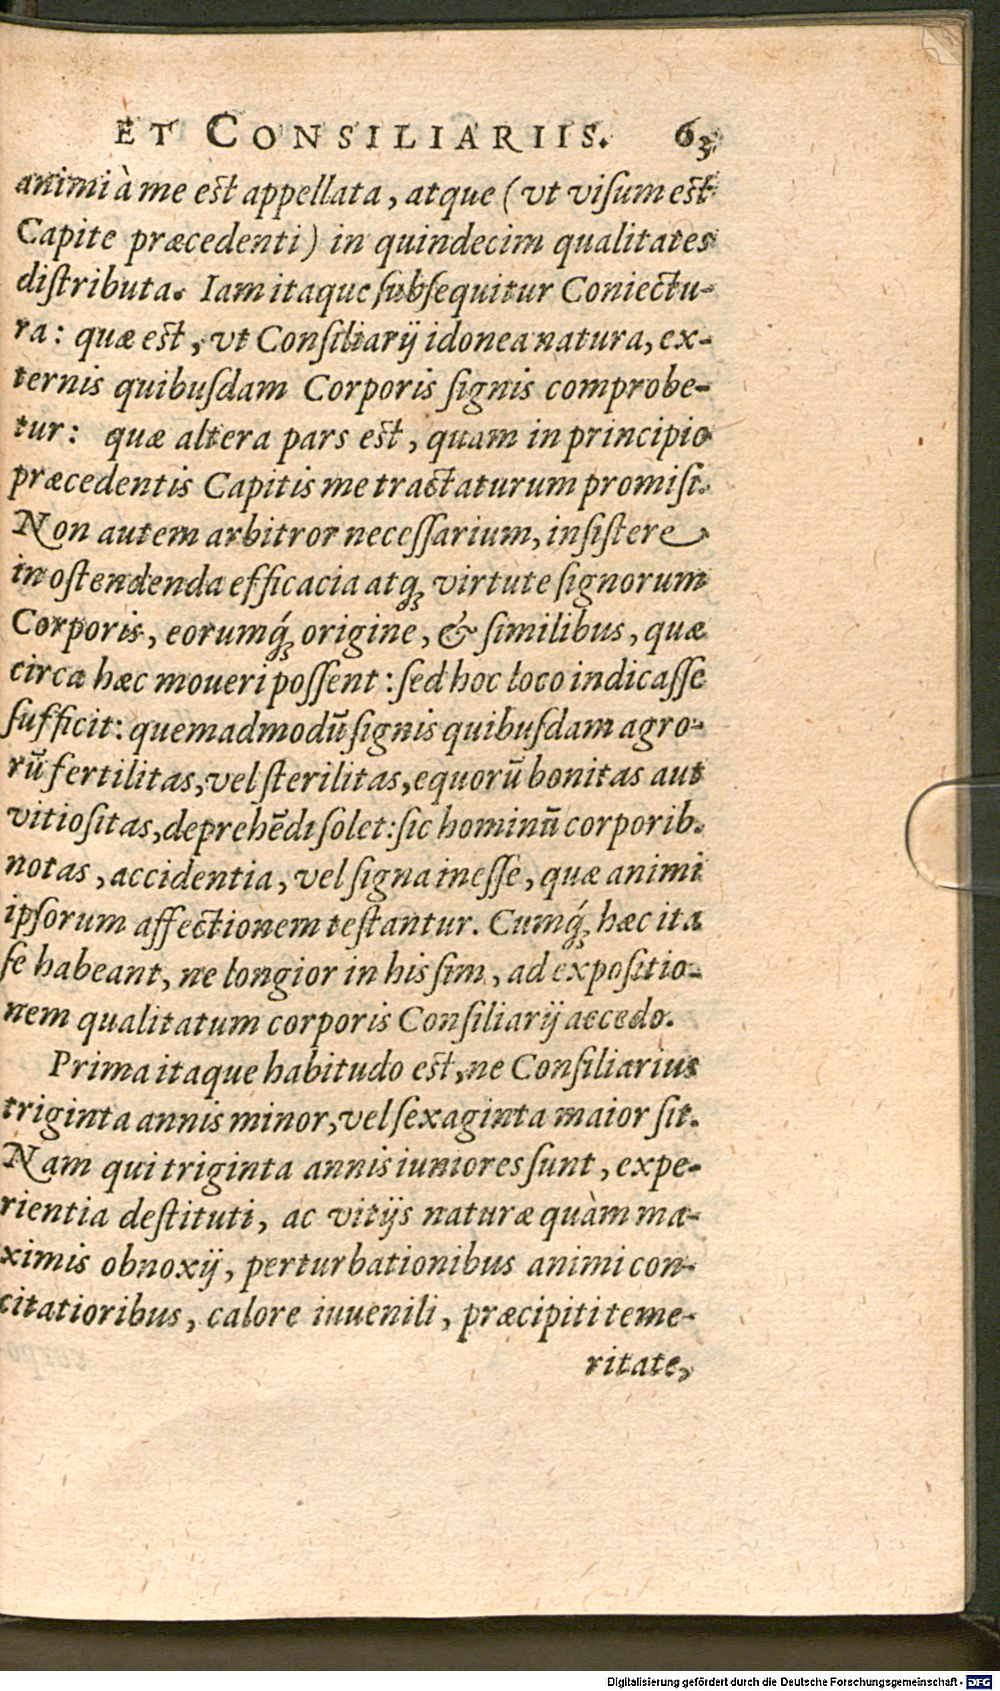 ET CONSILIARIIS. 63
animi à me est appellata, atque (vt visum est
Capite præcedenti) in quindecim qualitates
distributa. Iam itaque subsequitur Coniectu-
ra: quæ est, vt Consiliarij idonea natura, ex-
ternis quibusdam Corporis signis comprobe-
tur: quæ altera pars est, quam in principio
præcedentis Capitis me tractaturum promisi.
Non autem arbitror necessarium, insistere
in ostendenda efficacia atq; virtute signorum
Corporis, eorumq́; origine, & similibus, quæ
circa hæc moueri possent: sed hoc loco indicasse
sufficit: quemadmodū signis quibusdam agro-
rū fertilitas, vel sterilitas, equorū bonitas aut
vitiositas, deprehēdi solet: sic hominū corporib.
notas, accidentia, vel signa inesse, quæ animi
ipsorum affectionem testantur. Cumq́; hæc ita
se habeant, ne longior in his sim, ad expositio-
nem qualitatum corporis Consiliarij accedo.
Prima itaque habitudo est, ne Consiliarius
triginta annis minor, vel sexaginta maior sit.
Nam qui triginta annis iuniores sunt, expe-
rientia destituti, ac vitijs naturæ quàm ma-
ximis obnoxij, perturbationibus animi con-
citatioribus, calore iuuenili, præcipiti teme-
ritate,
Digitalisierung gefördert durch die Deutsche Forschungsgemeinschaft - DFG